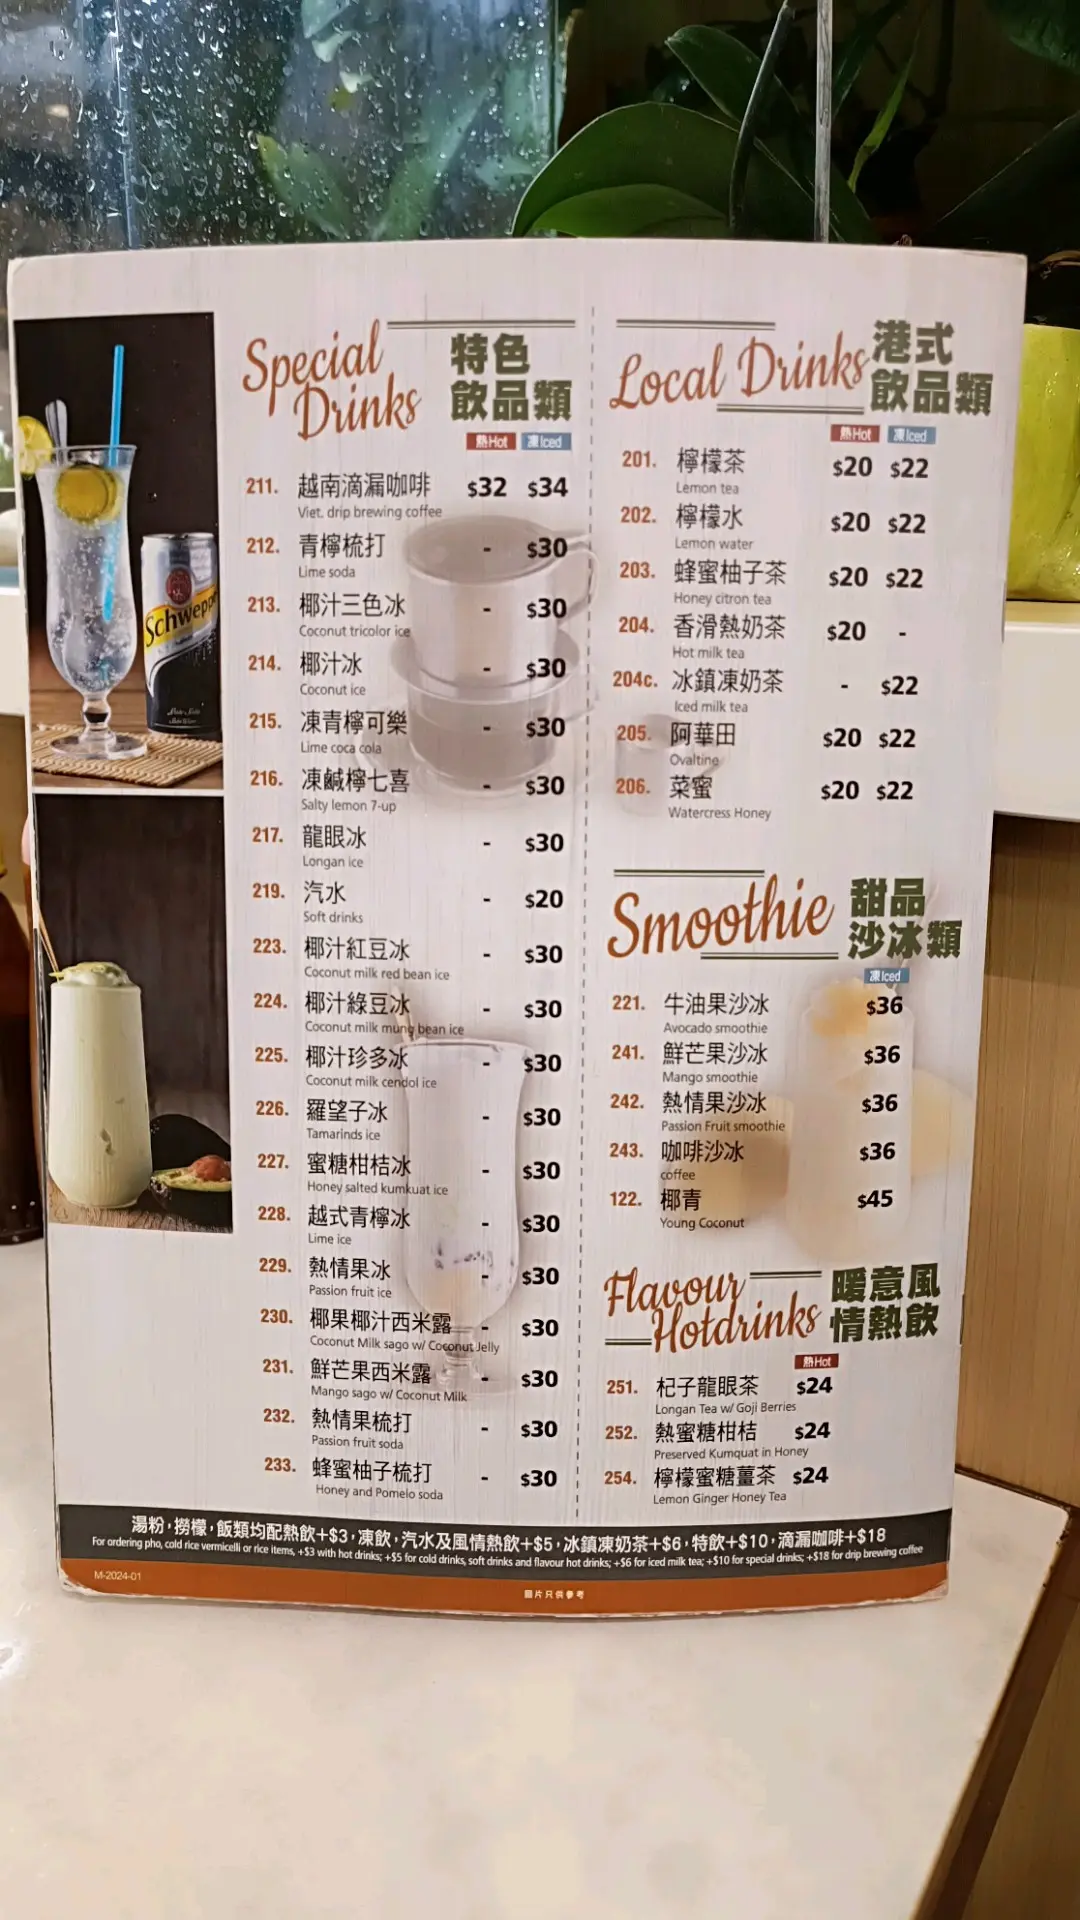 Special
Drinks
特色
飲品類
熱Hot 凍Iced
211. 越南滴漏咖啡 $32 $34
Viet. drip brewing coffee
212. 青檸梳打 - $30
Lime soda
213. 椰汁三色冰 - $30
Coconut tricolor ice
214. 椰汁冰 - $30
Coconut ice
215. 凍青檸可樂 - $30
Lime coca cola
216. 凍鹹檸七喜 - $30
Salty lemon 7-up
217. 龍眼冰 - $30
Longan ice
219. 汽水 - $20
Soft drinks
223. 椰汁紅豆冰 - $30
Coconut milk red bean ice
224. 椰汁綠豆冰 - $30
Coconut milk mung bean ice
225. 椰汁珍多冰 - $30
Coconut milk cendol ice
226. 羅望子冰 - $30
Tamarinds ice
227. 蜜糖柑桔冰 - $30
Honey salted kumkuat ice
228. 越式青檸冰 - $30
Lime ice
229. 熱情果冰 - $30
Passion fruit ice
230. 椰果椰汁西米露 - $30
Coconut Milk sago w/ Coconut Jelly
231. 鮮芒果西米露 - $30
Mango sago w/ Coconut Milk
232. 熱情果梳打 - $30
Passion fruit soda
233. 蜂蜜柚子梳打 - $30
Honey and Pomelo soda
Local Drinks
港式
飲品類
熱Hot 凍Iced
201. 檸檬茶 $20 $22
Lemon tea
202. 檸檬水 $20 $22
Lemon water
203. 蜂蜜柚子茶 $20 $22
Honey citron tea
204. 香滑熱奶茶 $20 -
Hot milk tea
204c. 冰鎮凍奶茶 - $22
Iced milk tea
205. 阿華田 $20 $22
Ovaltine
206. 菜蜜 $20 $22
Watercress Honey
Smoothie
甜品
沙冰類
凍Iced
221. 牛油果沙冰 $36
Avocado smoothie
241. 鮮芒果沙冰 $36
Mango smoothie
242. 熱情果沙冰 $36
Passion Fruit smoothie
243. 咖啡沙冰 $36
coffee
122. 椰青 $45
Young Coconut
Flavour
Hotdrinks
暖意風
情熱飲
熱Hot
251. 杞子龍眼茶 $24
Longan Tea w/ Goji Berries
252. 熱蜜糖柑桔 $24
Preserved Kumquat in Honey
254. 檸檬蜜糖薑茶 $24
Lemon Ginger Honey Tea
Schweppe
湯粉，撈檬，飯類均配熱飲+$3，凍飲，汽水及風情熱飲+$5，冰鎮凍奶茶+$6，特飲+$10，滴漏咖啡+$18
For ordering pho, cold rice vermicelli or rice items, +$3 with hot drinks; +$5 for cold drinks, soft drinks and flavour hot drinks; +$6 for iced milk tea; +$10 for special drinks; +$18 for drip brewing coffee
M-2024-01
圖片只供參考